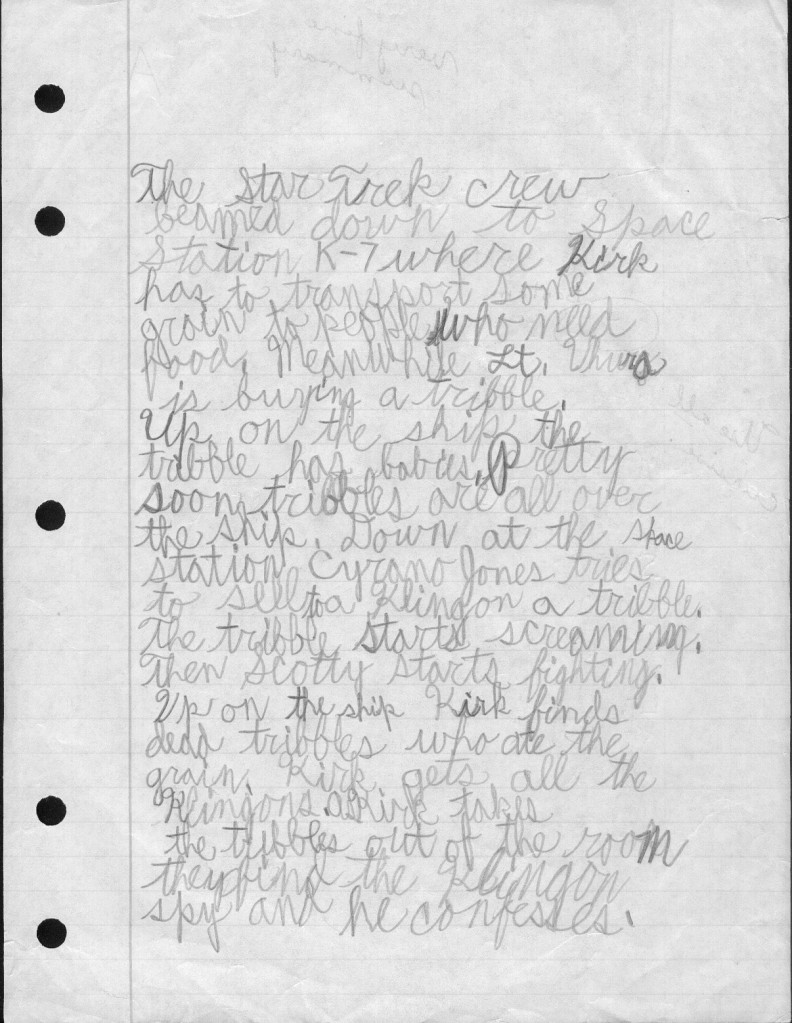 The Star Trek crew
beamed down to Space
Station K-7 where Kirk
has to transport some
grain to people who need
food. Meanwhile Lt. Uhura
is buying a tribble.
Up on the ship the
tribble has babies. Pretty
soon tribbles are all over
the ship. Down at the space
station Cyrano Jones tries
to sell to a Klingon a tribble.
The tribble starts screaming.
Then Scotty starts fighting.
Up on the ship Kirk finds
dead tribbles who ate the
grain. Kirk gets all the
Klingons. As Kirk takes
the tribbles out of the room
they find the Klingon
spy and he confesses.